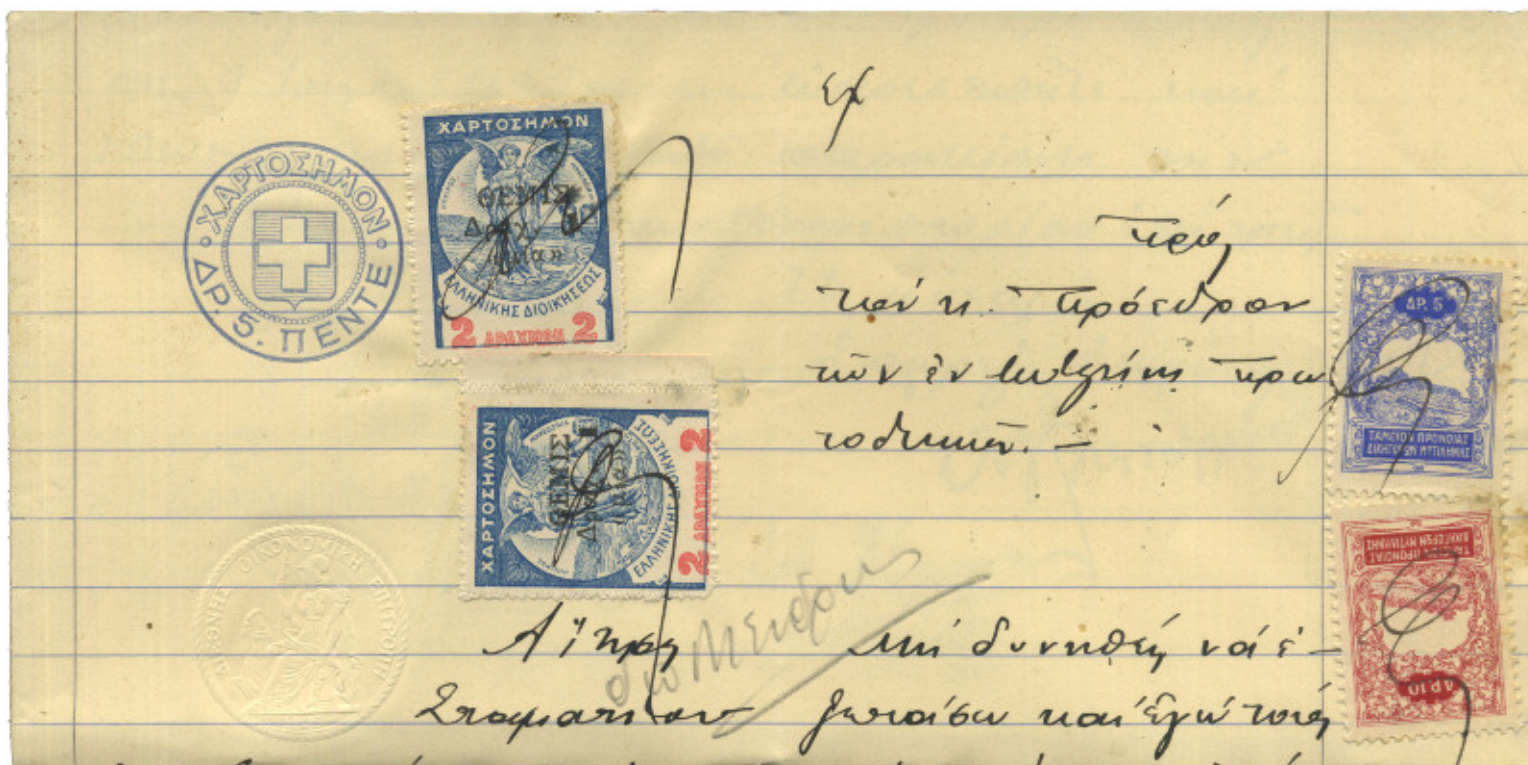 ΧΑΡΤΟΣΗΜΟΝ
ΔΡ. 5. ΠΕΝΤΕ
ΧΑΡΤΟΣΗΜΟΝ
ΘΕΜΙΣ
Δραχ. 1
«μία»
ΕΛΛΗΝΙΚΗΣ ΔΙΟΙΚΗΣΕΩΣ
2 ΔΡΑΧΜΩΝ 2
ΧΑΡΤΟΣΗΜΟΝ
ΘΕΜΙΣ
Δραχ. 1
«μία»
ΕΛΛΗΝΙΚΗΣ ΔΙΟΙΚΗΣΕΩΣ
2 ΔΡΑΧΜΩΝ 2
Πρός
τόν κ. Πρόεδρον
τῶν ἐν Μυτιλήνῃ πρω
τοδικῶν. –
ΔΡ. 5
ΤΑΜΕΙΟΥ ΠΡΟΝΟΙΑΣ
ΔΙΚΗΓΟΡΩΝ ΜΥΤΙΛΗΝΗΣ
ΤΑΜΕΙΟΥ ΠΡΟΝΟΙΑΣ
ΔΙΚΗΓΟΡΩΝ ΜΥΤΙΛΗΝΗΣ
ΔΡ. 10
ΔΙΕΘΝΗΣ ΟΙΚΟΝΟΜΙΚΗ ΕΠΙΤΡΟΠΗ
Αἴτησις Μή δυνηθείς νά ἐ-
Σταματίου καί ἐγώ τούς